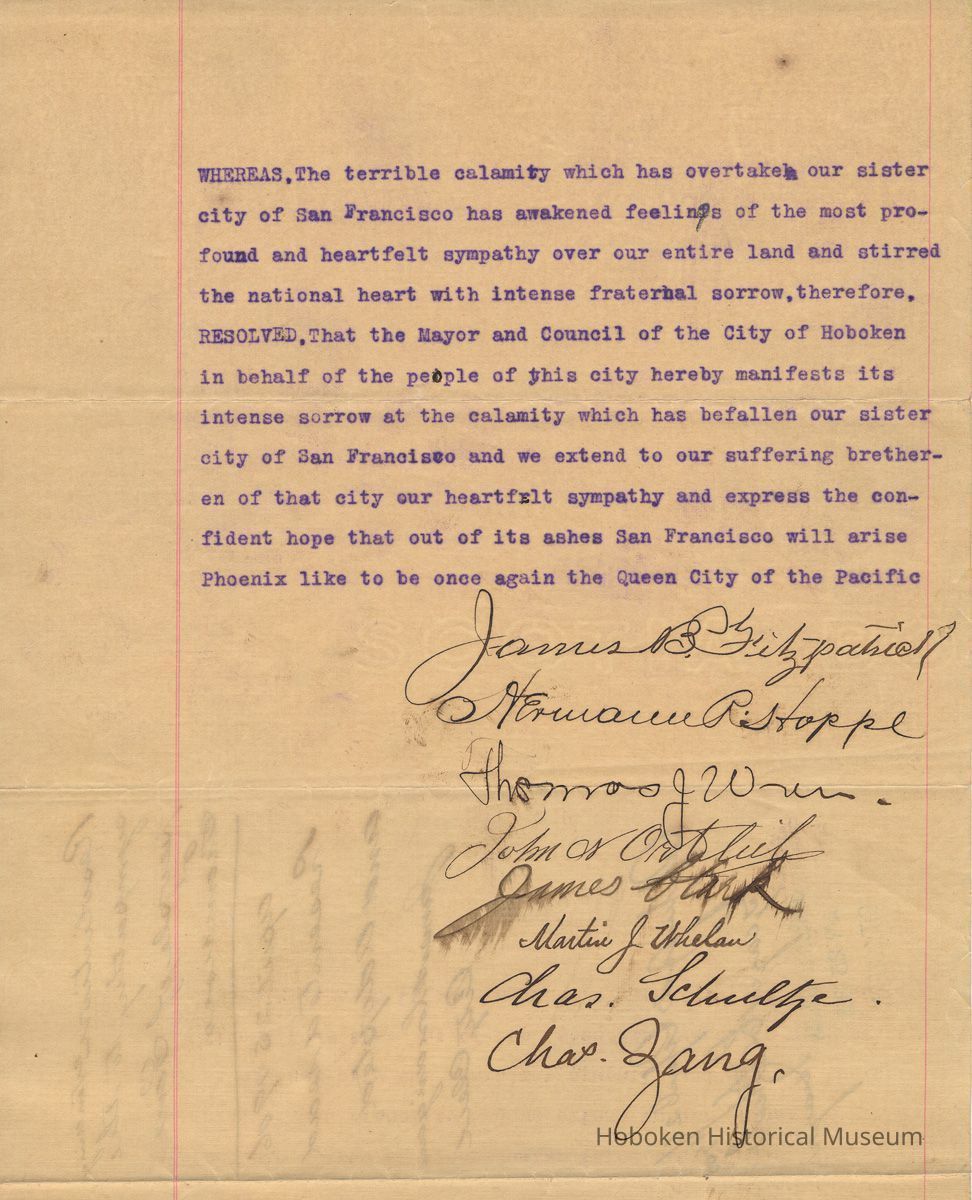 WHEREAS,The terrible calamity which has overtaken our sister
city of San Francisco has awakened feelings of the most pro-
found and heartfelt sympathy over our entire land and stirred
the national heart with intense fraternal sorrow,therefore,
RESOLVED,That the Mayor and Council of the City of Hoboken
in behalf of the people of this city hereby manifests its
intense sorrow at the calamity which has befallen our sister
city of San Francisco and we extend to our suffering brether-
en of that city our heartfelt sympathy and express the con-
fident hope that out of its ashes San Francisco will arise
Phoenix like to be once again the Queen City of the Pacific
James B. Fitzpatrick
Hermann P. Hoppe
Thomas J Wren.
John N Ortlieb
James Clark
Martin J Whelan
Chas. Schultze.
Chas. Zang.
Hoboken Historical Museum